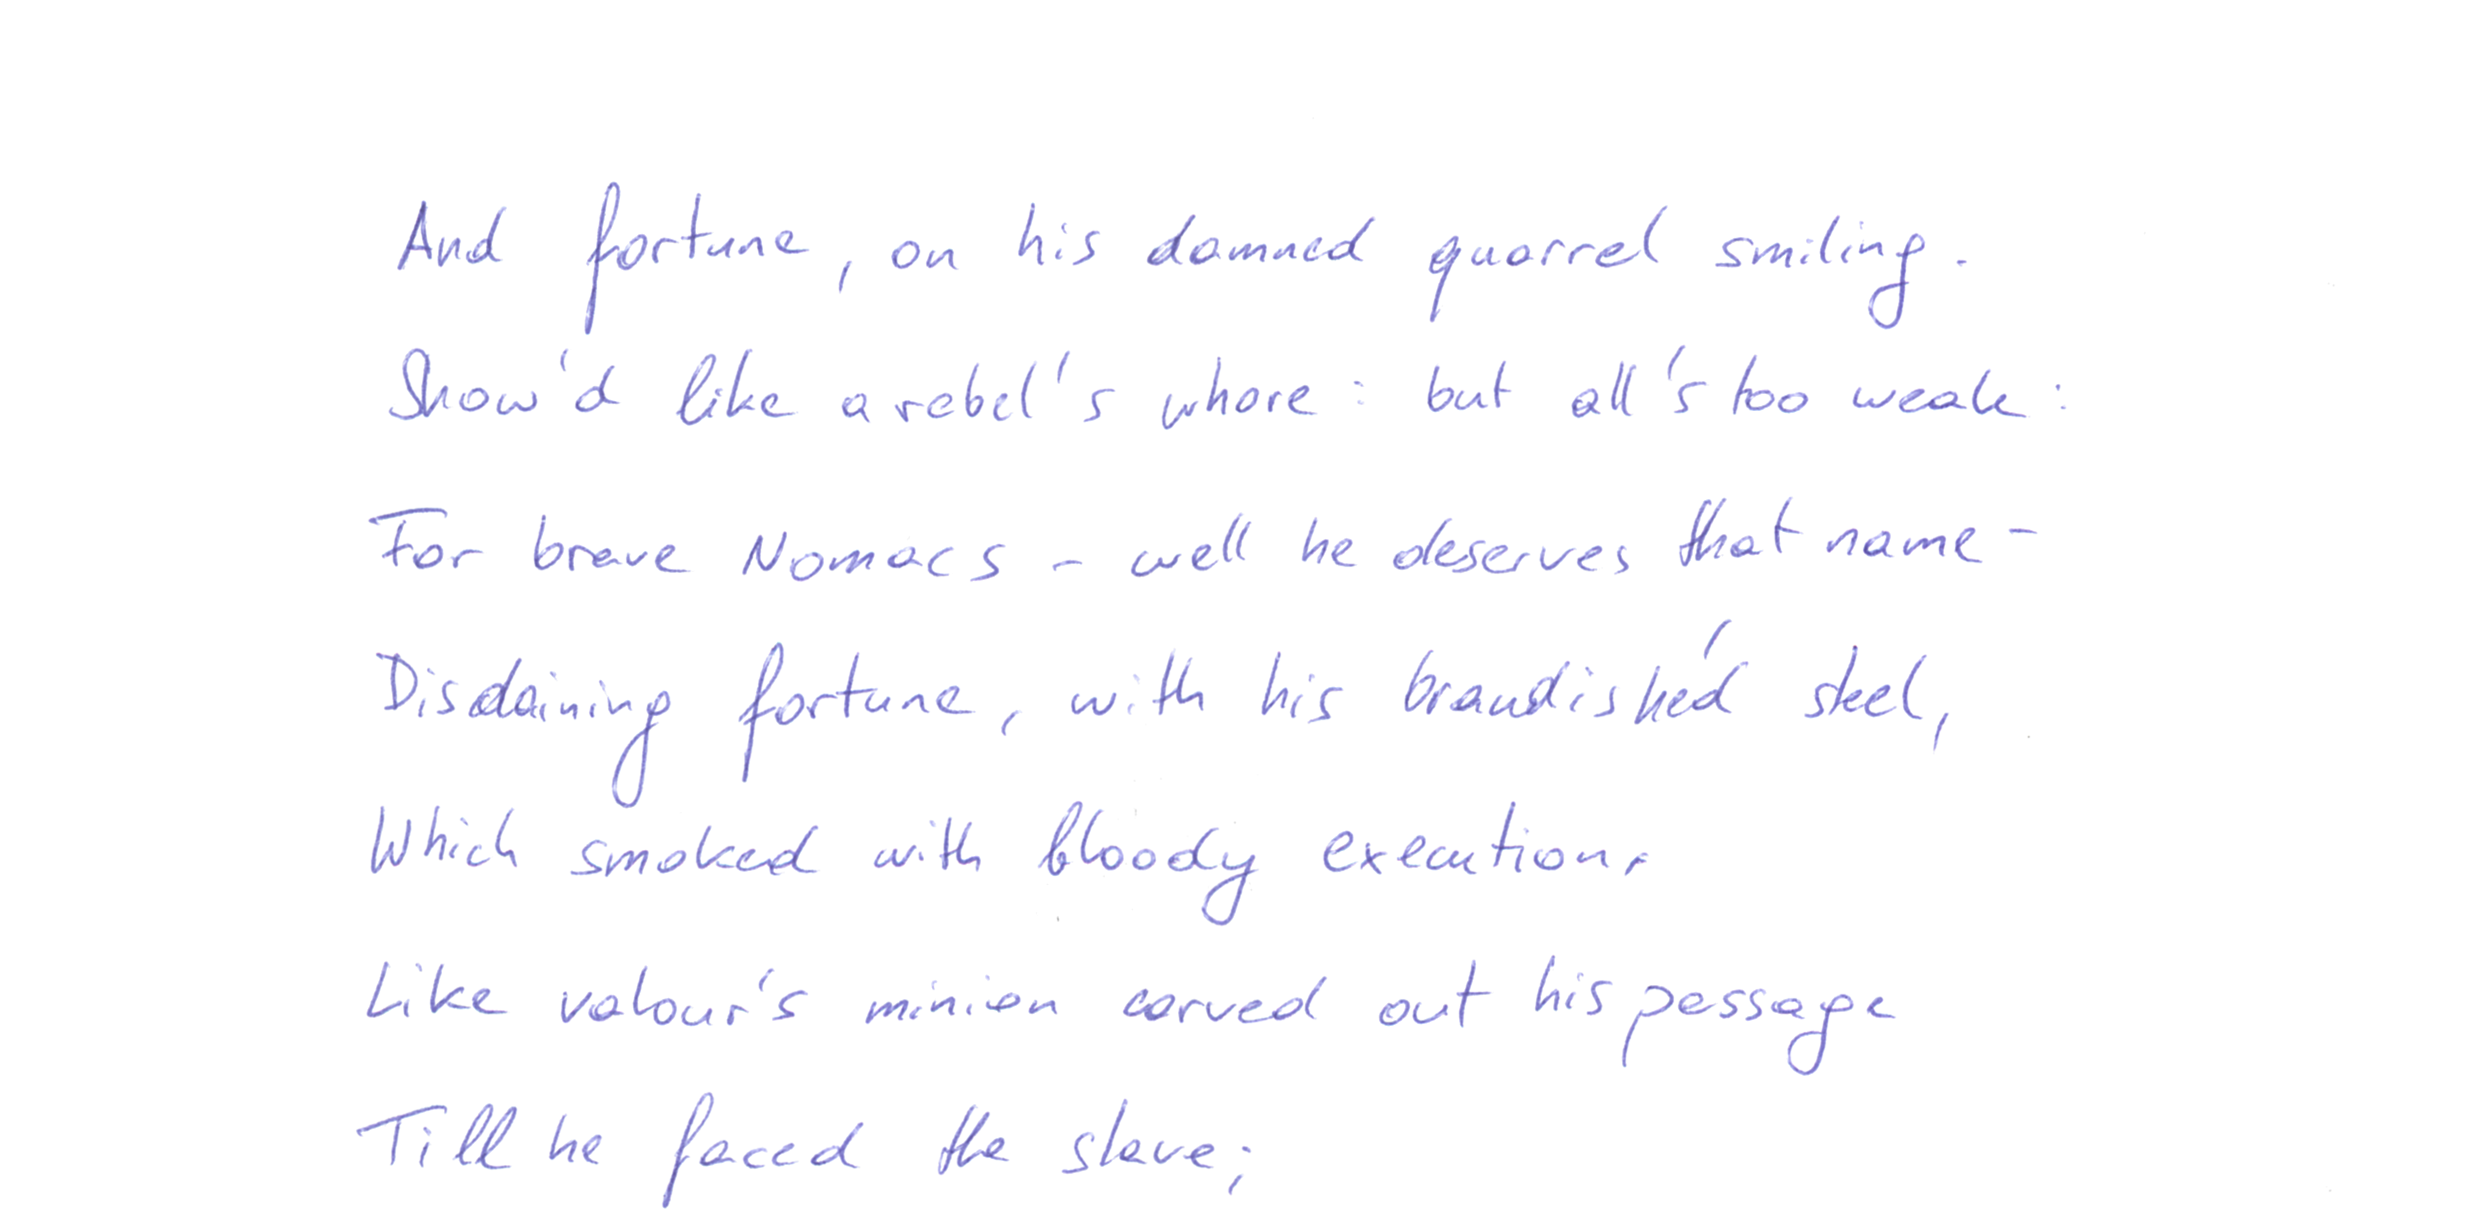 And fortune, on his damned quarrel smiling.
Show'd like a rebel's whore: but all's too weak:
For brave Nomacs - well he deserves that name -
Disdaining fortune, with his brandish'd steel,
Which smoked with bloody execution,
Like valour's minion carved out his passage
Till he faced the slave;